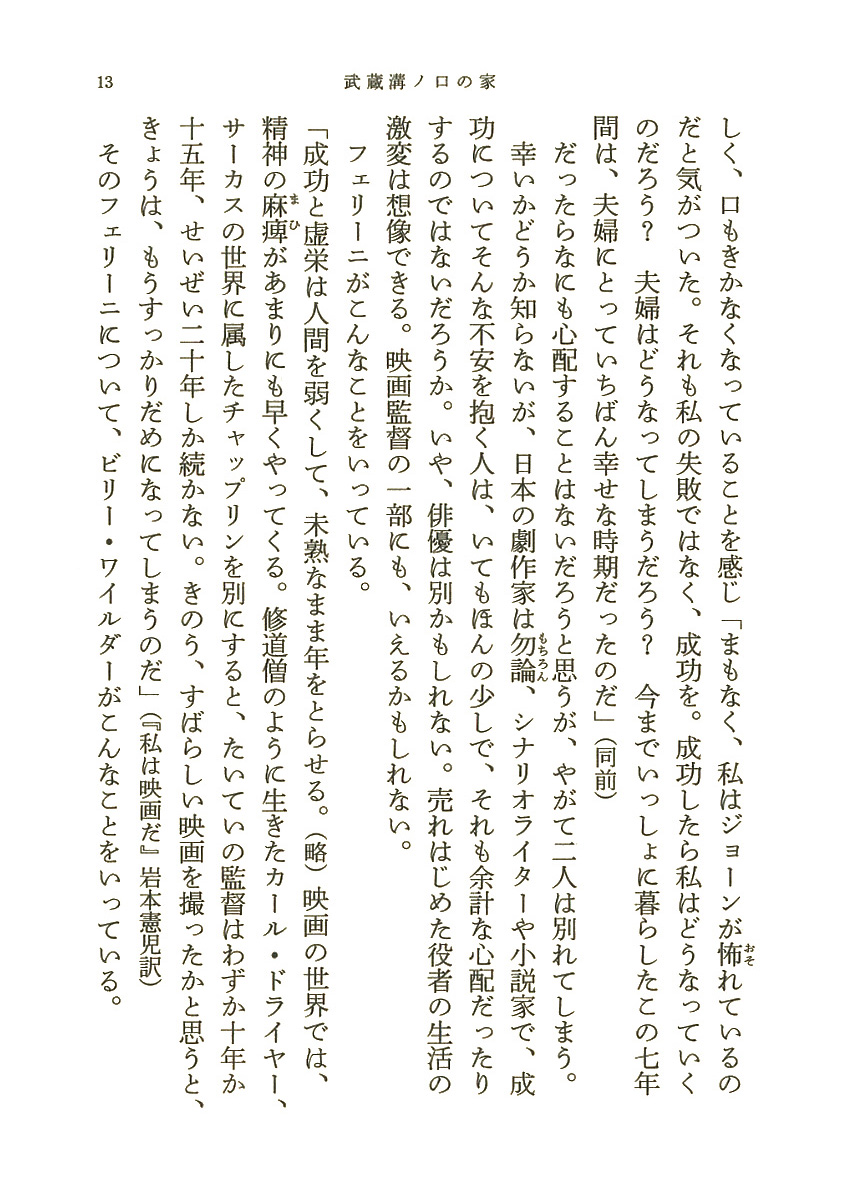 13
武蔵溝ノ口の家
しく、口もきかなくなっていることを感じ「まもなく、私はジョーンが怖れているの
だと気がついた。それも私の失敗ではなく、成功を。成功したら私はどうなっていく
のだろう？　夫婦はどうなってしまうだろう？　今までいっしょに暮らしたこの七年
間は、夫婦にとっていちばん幸せな時期だったのだ」（同前）
　だったらなにも心配することはないだろうと思うが、やがて二人は別れてしまう。
　幸いかどうか知らないが、日本の劇作家は勿論、シナリオライターや小説家で、成
功についてそんな不安を抱く人は、いてもほんの少しで、それも余計な心配だったり
するのではないだろうか。いや、俳優は別かもしれない。売れはじめた役者の生活の
激変は想像できる。映画監督の一部にも、いえるかもしれない。
　フェリーニがこんなことをいっている。
「成功と虚栄は人間を弱くして、未熟なまま年をとらせる。（略）映画の世界では、
精神の麻痺があまりにも早くやってくる。修道僧のように生きたカール・ドライヤー、
サーカスの世界に属したチャップリンを別にすると、たいていの監督はわずか十年か
十五年、せいぜい二十年しか続かない。きのう、すばらしい映画を撮ったかと思うと、
きょうは、もうすっかりだめになってしまうのだ」（『私は映画だ』岩本憲児訳）
　そのフェリーニについて、ビリー・ワイルダーがこんなことをいっている。
おそ
もちろん
まひ